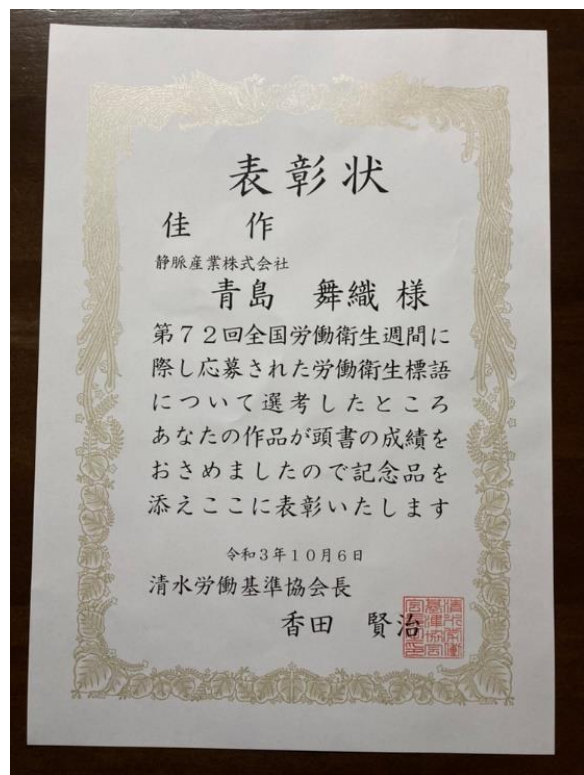 表彰状
佳 作
静脈産業株式会社
青島 舞織 様
第72回全国労働衛生週間に
際し応募された労働衛生標語
について選考したところ
あなたの作品が頭書の成績を
おさめましたので記念品を
添えここに表彰いたします
令和3年10月6日
清水労働基準協会長
香田 賢治